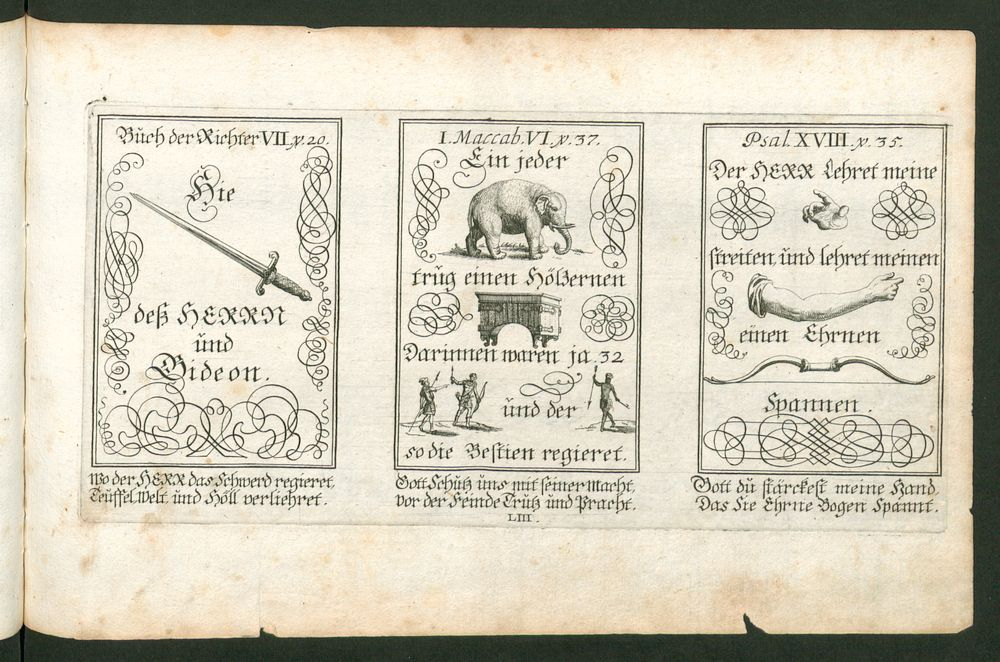 Büch der Richter VII. v. 20.
Hie
deß HERRN
und
Gideon.
Wo der HERR das Schwerd regieret,
Teüffel, Welt und Höll verliehret.
I. Maccab. VI. v. 37.
Ein jeder
trüg einen Hölzernen
Darinnen waren ja 32
ünd der
so die Bestien regieret.
Gott Schütz üns mit seiner macht,
vor der Feinde Trütz und Pracht.
LIII.
Psal. XVIII. v. 35.
Der HERR Lehret meine
streiten ünd lehret meinen
einen Ehrnen
Spannen.
Gott dü stärckest meine Hand,
Das Sie Ehrne Bogen Spannt.